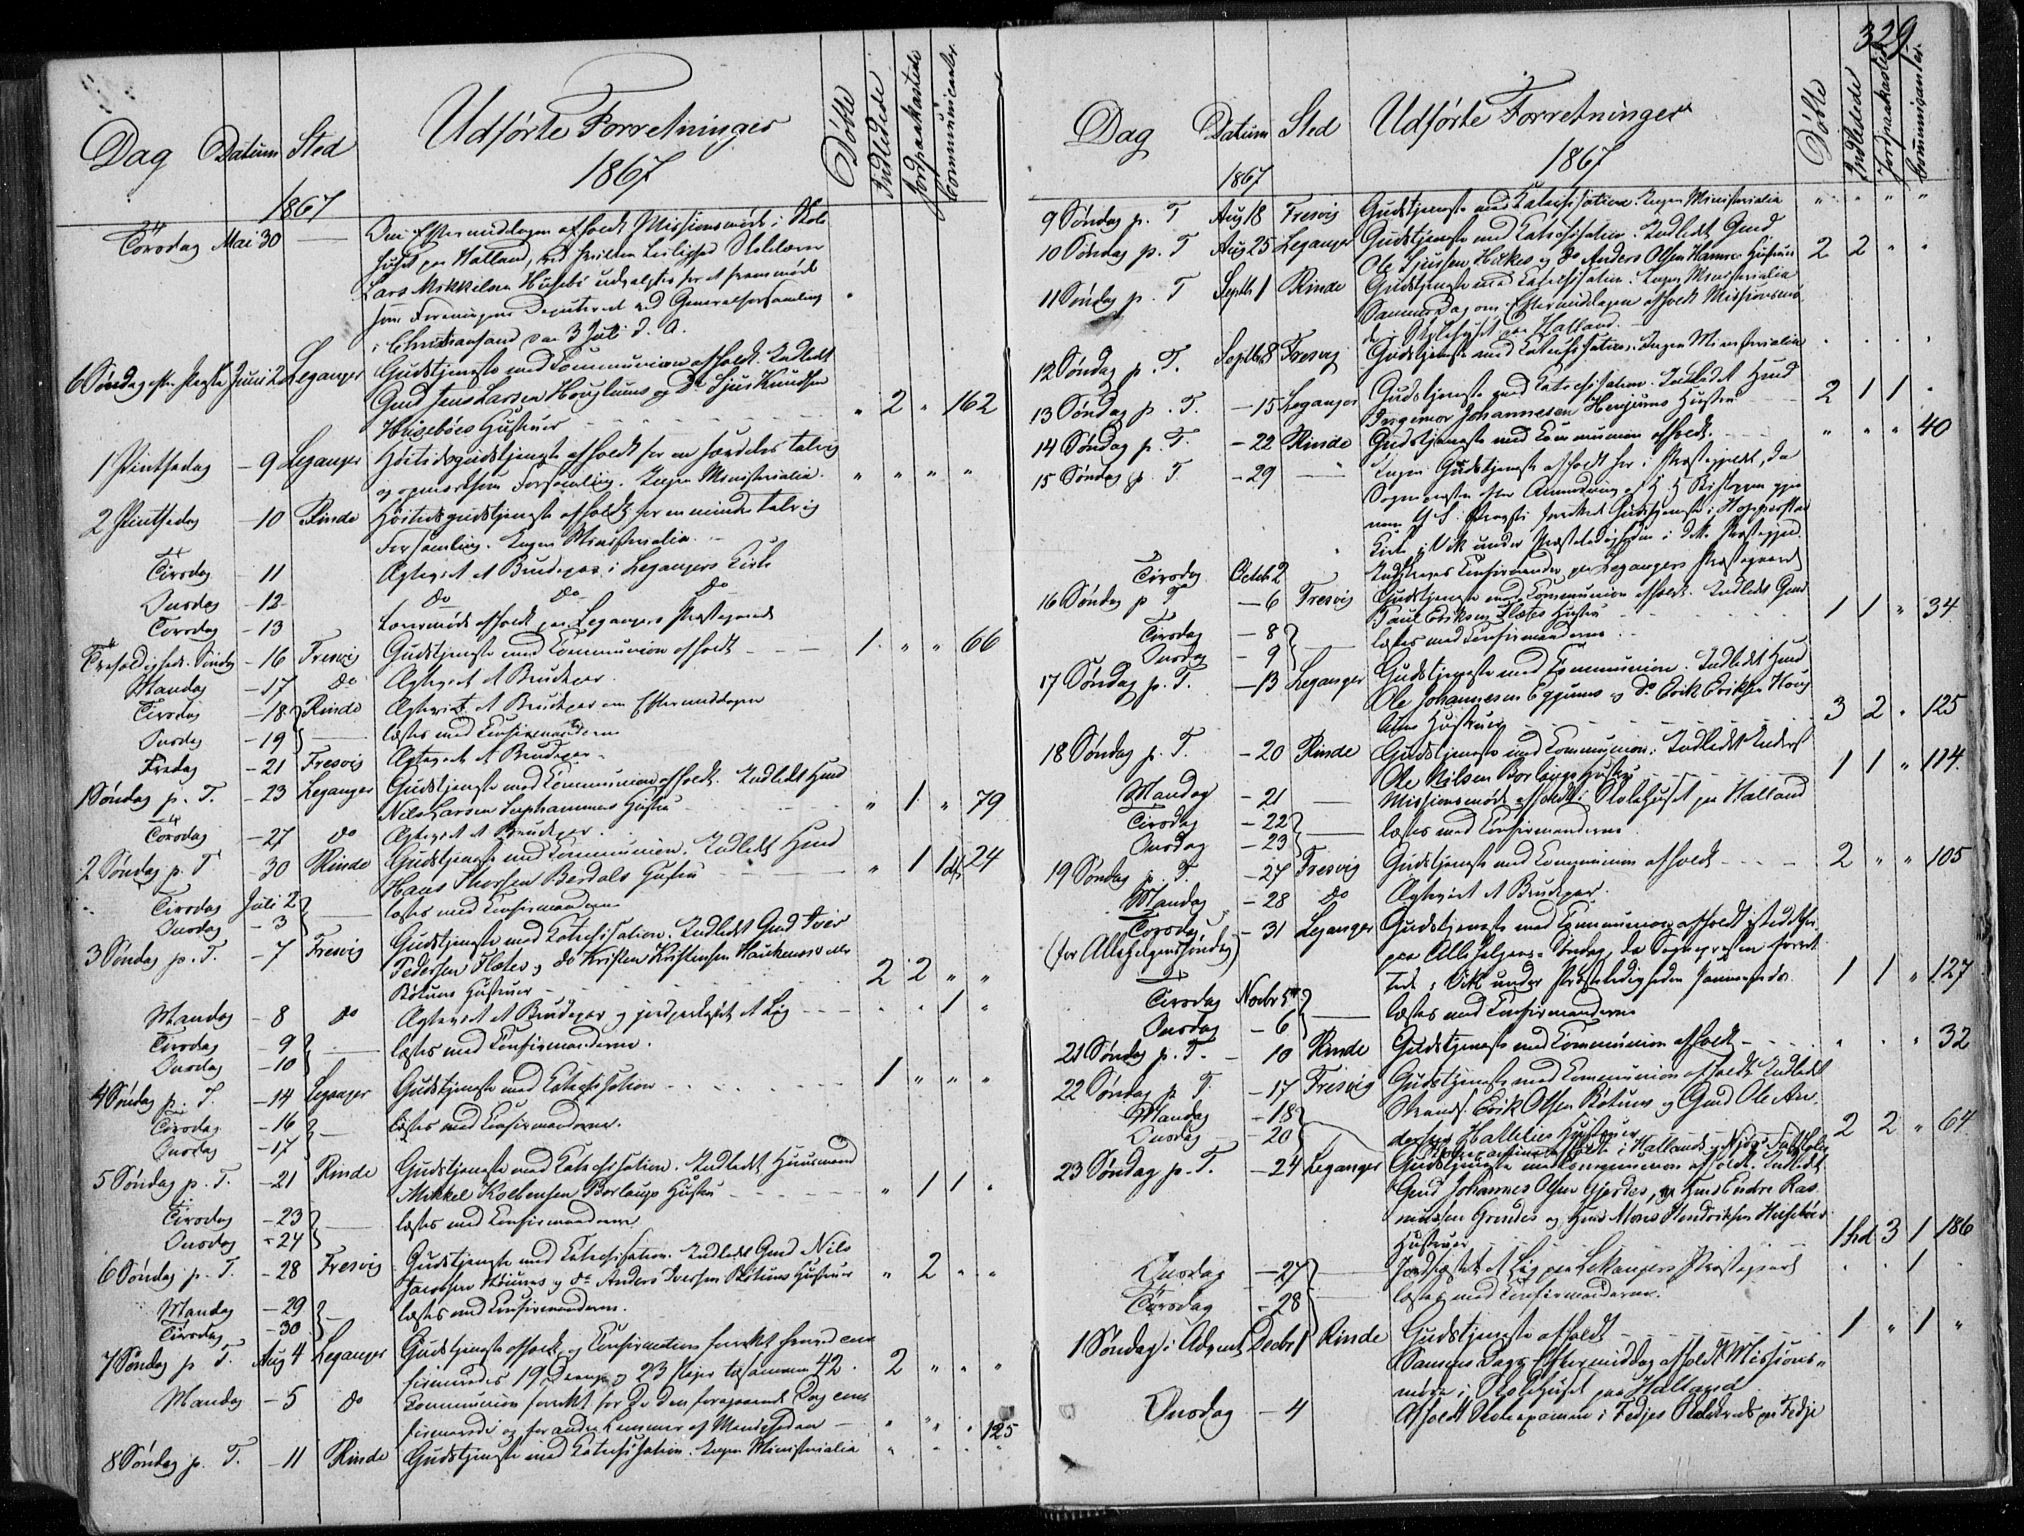 Dag Datum Sted Udførte Forretninger Døbte Indledede Jordpaakastede Communicanter
1867 1867
Torsdag Mai 30 — Om Eftermiddagen afholdt Missionsmøde i Skole
huset paa Halland, ved hvilken Leilighed Skolelærer
Lars Mikkilsen Husebø udvalgtes for at fremmøde
som Foreningens Deputeret ved Generalforsamling
i Christiansand den 3 Juli d. A.
6 Søndag efter Paaske Juni 2 Leganger Gudstjeneste med Communion afholdt. Indledt
Gmd Jens Larsen Houglums og Do Sjur Knudsen
Husebøes Hustruer " 2 " 162
1 Pintsedag – 9 Leganger Høitidsgudstjeneste afholdt for en særdeles talrig
og opmærksom Forsamling. Ingen Ministerialia. " " " "
2 Pintsedag – 10 Rinde Høitidsgudstjeneste afholdt for en mindre talrig
Forsamling. Ingen Ministerialia.
Tirsdag – 11 Ægteviet et Brudepar i Legangers Kirke
Onsdag – 12 Do Do Do
Torsdag – 13 afholdt paa Legangers Præstegaard
Trefoldigheds Søndag – 16 Fresvig Gudstjeneste med Communion afholdt 1 " " 66
Mandag – 17 Do Ægteviet et Brudepar.
Tirsdag – 18 Rinde Ægteviet et Brudepar om Eftermiddagen
Onsdag – 19 læstes med Confirmanderne
Fredag – 21 Fresvig Ægteviet et Brudepar
1 Søndag p. T. – 23 Leganger Gudstjeneste med Communion afholdt. Indledt Huusmd
Nils Larsen Hustru " 1 " 79
Torsdag – 27 do Ægteviet et Brudepar.
2 Søndag p. T – 30 Rinde Gudstjeneste med Communion. Indledt Huusmd
Hans Thorsen Berdals Hustru " 1 1 24
Tirsdag Juli 2 læstes med Confirmanderne
Onsdag – 3
3 Søndag p. T. – 7 Fresvig Gudstjeneste med Catechisation. Indledt Gmd Iver
Pedersen Flætes og do Kristen Kristensen
Bøtuns Hustruer 2 2 " "
Mandag – 8 do Ægteviet et Brudepar og jordpaakastet et Lig " " 1 "
Tirsdag – 9 læstes med Confirmanderne.
Onsdag – 10
4 Søndag p. T. – 14 Leganger Gudstjeneste med Catechisation 1 " " "
Tirsdag – 16 læstes med Confirmanderne.
Onsdag – 17
5 Søndag p. T. – 21 Rinde Gudstjeneste med Catechisation. Indledt Huusmand
Mikkel Kolbensen Borlaugs Hustru " 1 1 "
Tirsdag – 23 læstes med Confirmanderne
Onsdag – 24
6 Søndag p. T. – 28 Fresvig Gudstjeneste med Catechisation. Indledt Gmd Nils
Jacobsen og do Anders Iversen Bøtuns Hustruer " 2 " "
Mandag – 29 læstes med Confirmanderne.
Tirsdag – 30
7 Søndag p T. Aug 4 Leganger Gudstjeneste afholdt og Confirmation forrettet hvorved con
firmeredes 19 Drenge og 23 Piger tilsammen 42. 2 " " "
Mandag – 5 do Communion forrettet for De den foregaaende Dag con
firmerede og for andre Lemmer af Menigheden " " " 125
8 Søndag p. T. – 11 Rinde Gudstjeneste med Catechisation. Ingen Ministerialia " " " "
329.
Dag Datum Sted Udførte Forretninger Døbte Indledede Jordpaakastede Communicanter
1867 1867
9 Søndag p. T Aug 18 Fresvig Gudstjeneste med Catechisation. Ingen Ministerialia " " " "
10 Søndag p. T Aug 25 Leganger Gudstjeneste med Catechisation. Indledt Gmd
Ole Sjursen og do Anders Olsen Hamres Hustruer 2 2 " "
11 Søndag p. T Septbr 1 Rinde Gudstjeneste med Catechisation. Ingen Ministerialia
Samme Dag om Eftermiddagen afholdt Missionsmø
de i Skolehuset paa Halland.
12 Søndag p. T. Septbr 8 Fresvig Gudstjeneste med Catechisation. Ingen Ministerialia " " " "
13 Søndag p. T. – 15 Leganger Gudstjeneste med Catechisation. Indledet Huusmd
Ingemor Johannesen Henjums Hustru 2 1 1 "
14 Søndag p. T. – 22 Rinde Gudstjeneste med Communion afholdt. " " " 40
15 Søndag p. T – 29 — Ingen Gudstjeneste afholdt her i Præstegjeldet, da
Sognepræsten efter Anmodning af H. H. Biskoppen gjen
nem forrettede Gudstjeneste i Hopperstad
Kirke i Vik under Præsteledigheden i dette Præstegjeld
Tirsdag Octob 2 Indskreves Confirmander paa Legangers Præstegaard
16 Søndag p T – 6 Fresvig Gudstjeneste med Communion afholdt. Indledt Gmd
Paul Eriksen Flætes Hustru 1 1 " 34
Tirsdag – 8 læstes med Confirmanderne.
Onsdag – 9
17 Søndag p. T. – 13 Leganger Gudstjeneste med Communion. Indledt Huusmd
Ole Johannesen Eggums og do Erik Eriksen
Hustruer 3 2 " 125
18 Søndag p. T. – 20 Rinde Gudstjeneste med Communion. Indledt
Ole Nilsen Borlaugs Hustru 1 1 " 114
Mandag – 21 – Missionsmøde afholdt i Skolehuset paa Halland
Tirsdag – 22 læstes med Confirmanderne.
Onsdag – 23
19 Søndag p. T. – 27 Fresvig Gudstjeneste med Communion afholdt 2 " " 105
Mandag – 28 do Ægteviet et Brudepar.
Torsdag – 31 Leganger Gudstjeneste med Communion afholdt istedetfor
(for Allehelgens Søndag) paa Allehelgens-Søndag, da Sognepræsten forret
tede i Vik under Præsteledigheden sammesteds. 1 1 " 127
Tirsdag Novbr 5 læstes med Confirmanderne
Onsdag – 6
21 Søndag p. T. – 10 Rinde Gudstjeneste med Communion afholdt " " " 32
22 Søndag p T. – 17 Fresvig Gudstjeneste med Communion afholdt. Indledt
Mandag – 18 Strands. Erik Olsen Bøtuns og Gmd Ole An
Onsdag – 20 dersen Hustruer 2 2 " 64
afholdt i Hallands og
23 Søndag p. T. – 24 Leganger Gudstjeneste med Communion afholdt. Indledt
Gmd Johannes Olsen Gjerdes, og Huusmd Endre Ras
mussen Grindes og Huusmd Mons Hendriksen Husebøes
Hustruer 1 hd 3 1 186
Onsdag – 27 Jordfæstet et Lig paa Lekangers Præstegaard " " 1 "
Torsdag – 28 læstes med Confirmanderne.
1 Søndag i Advent Decbr 1 Rinde Gudstjeneste afholdt 1 " 1 "
Sammes Dags Eftermiddag afholdt Missions-
møde i Skolehuset paa Halland
Onsdag – 4 Afholdt Skoleexamen i Fedjes Skolekreds paa Fedje